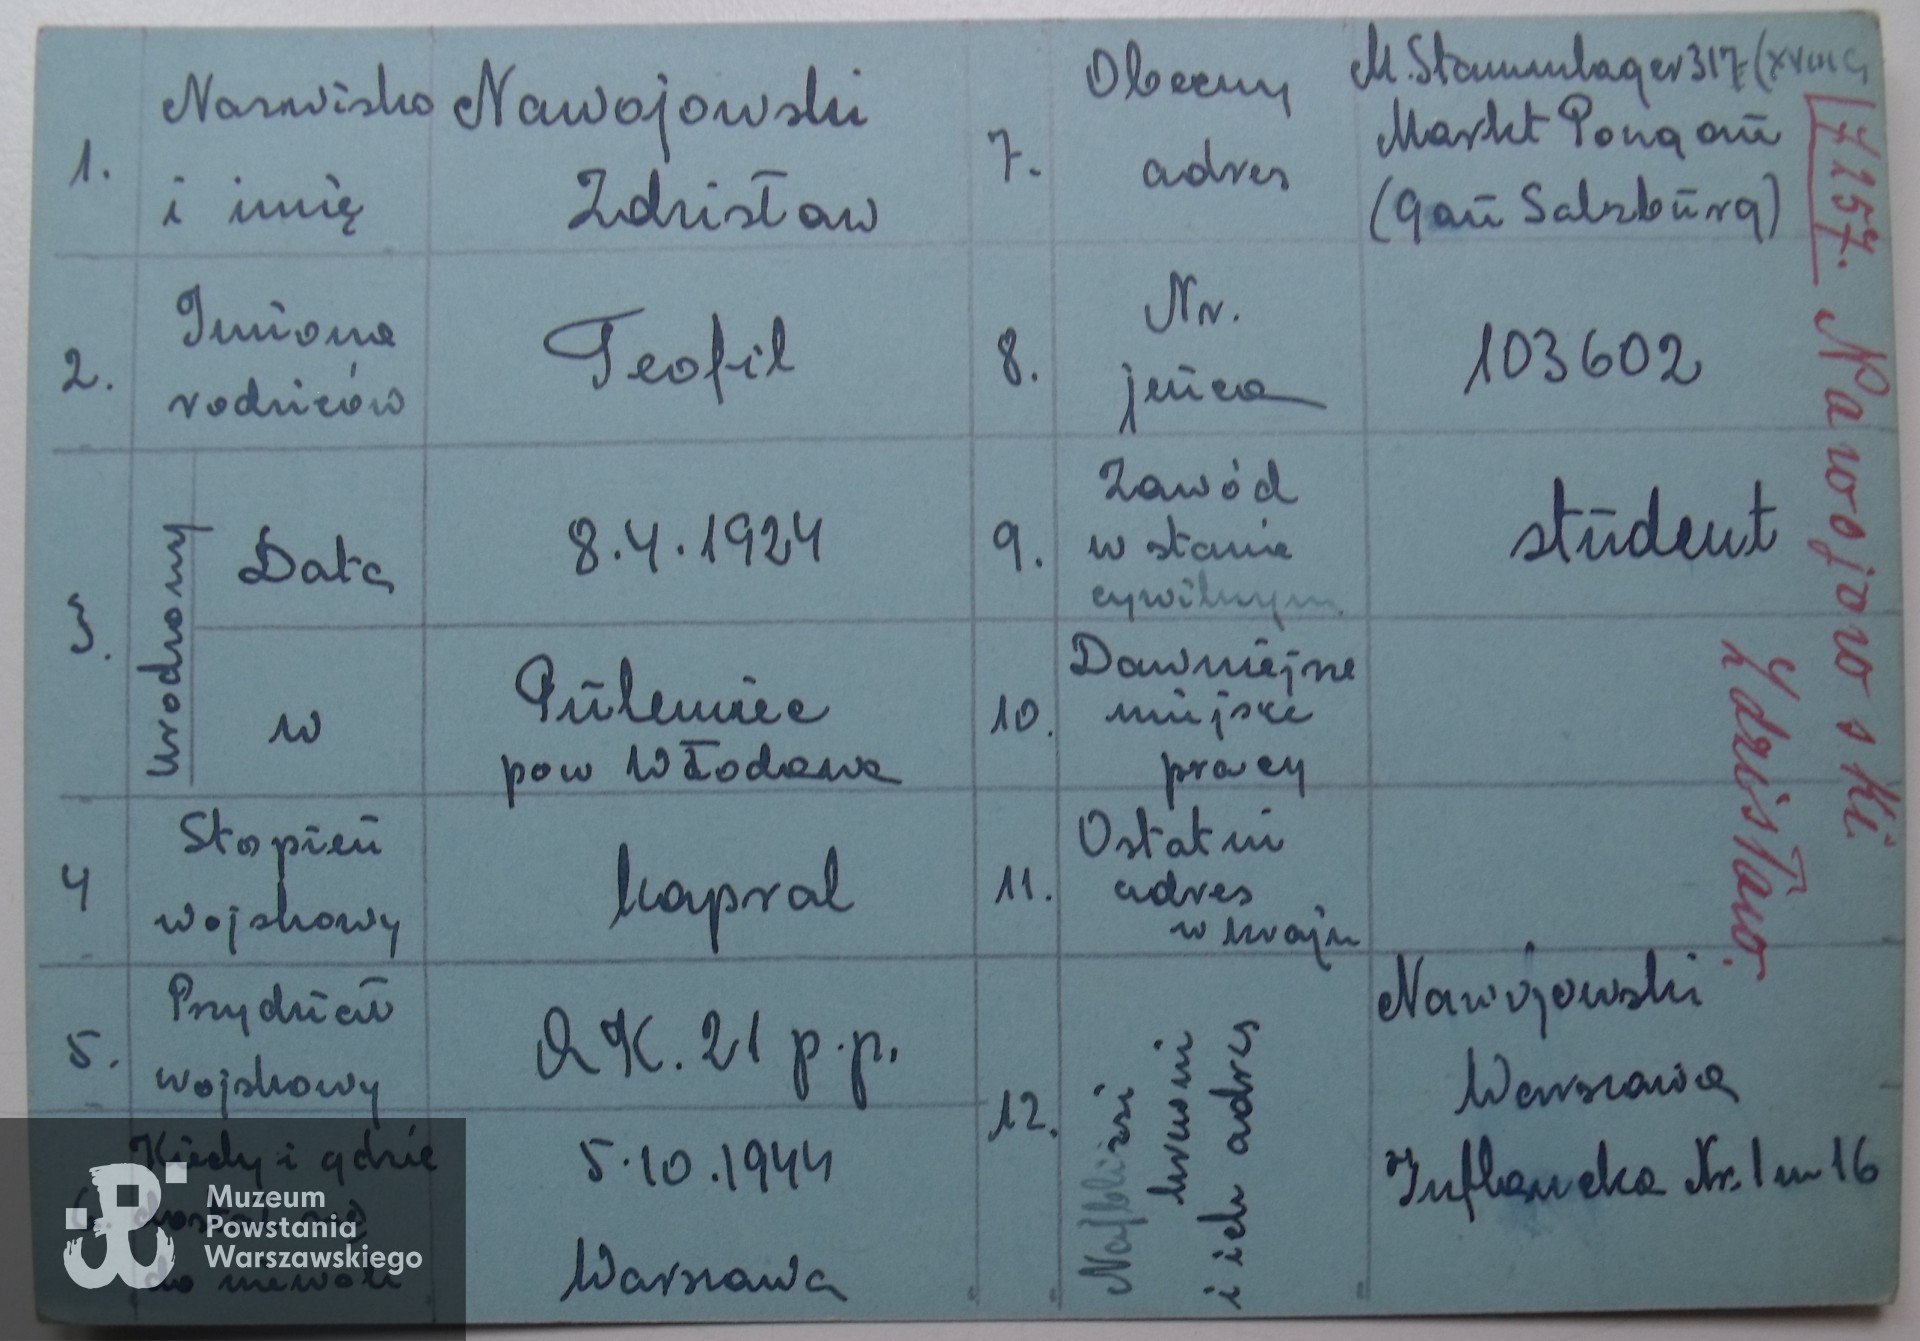 1.
Nazwisko
i imię
Nawojowski
Zdzisław
2.
Imiona
rodziców
Teofil
3.
urodzony
Data
8.4.1924
w
Pulemiec
pow Włodawa
4
Stopień
wojskowy
kapral
5.
Przydział
wojskowy
AK. 21 p.p.
6.
Kiedy i gdzie
dostał się
do niewoli
5.10.1944
Warszawa
7.
Obecny
adres
M. Stammlager 317 (XVIII C)
Markt Pongau
(gau Salzburg)
8.
Nr.
jeńca
103602
9.
Zawód
w stanie
cywilnym
student
10.
Dawniejsze
miejsce
pracy
11.
Ostatni
adres
w kraju
12.
Najbliżsi
krewni
i ich adres
Nawojowski
Warszawa
Inflancka Nr. 1 m 16
7157. Nawojowski
Zdzisław.
Muzeum
Powstania
Warszawskiego